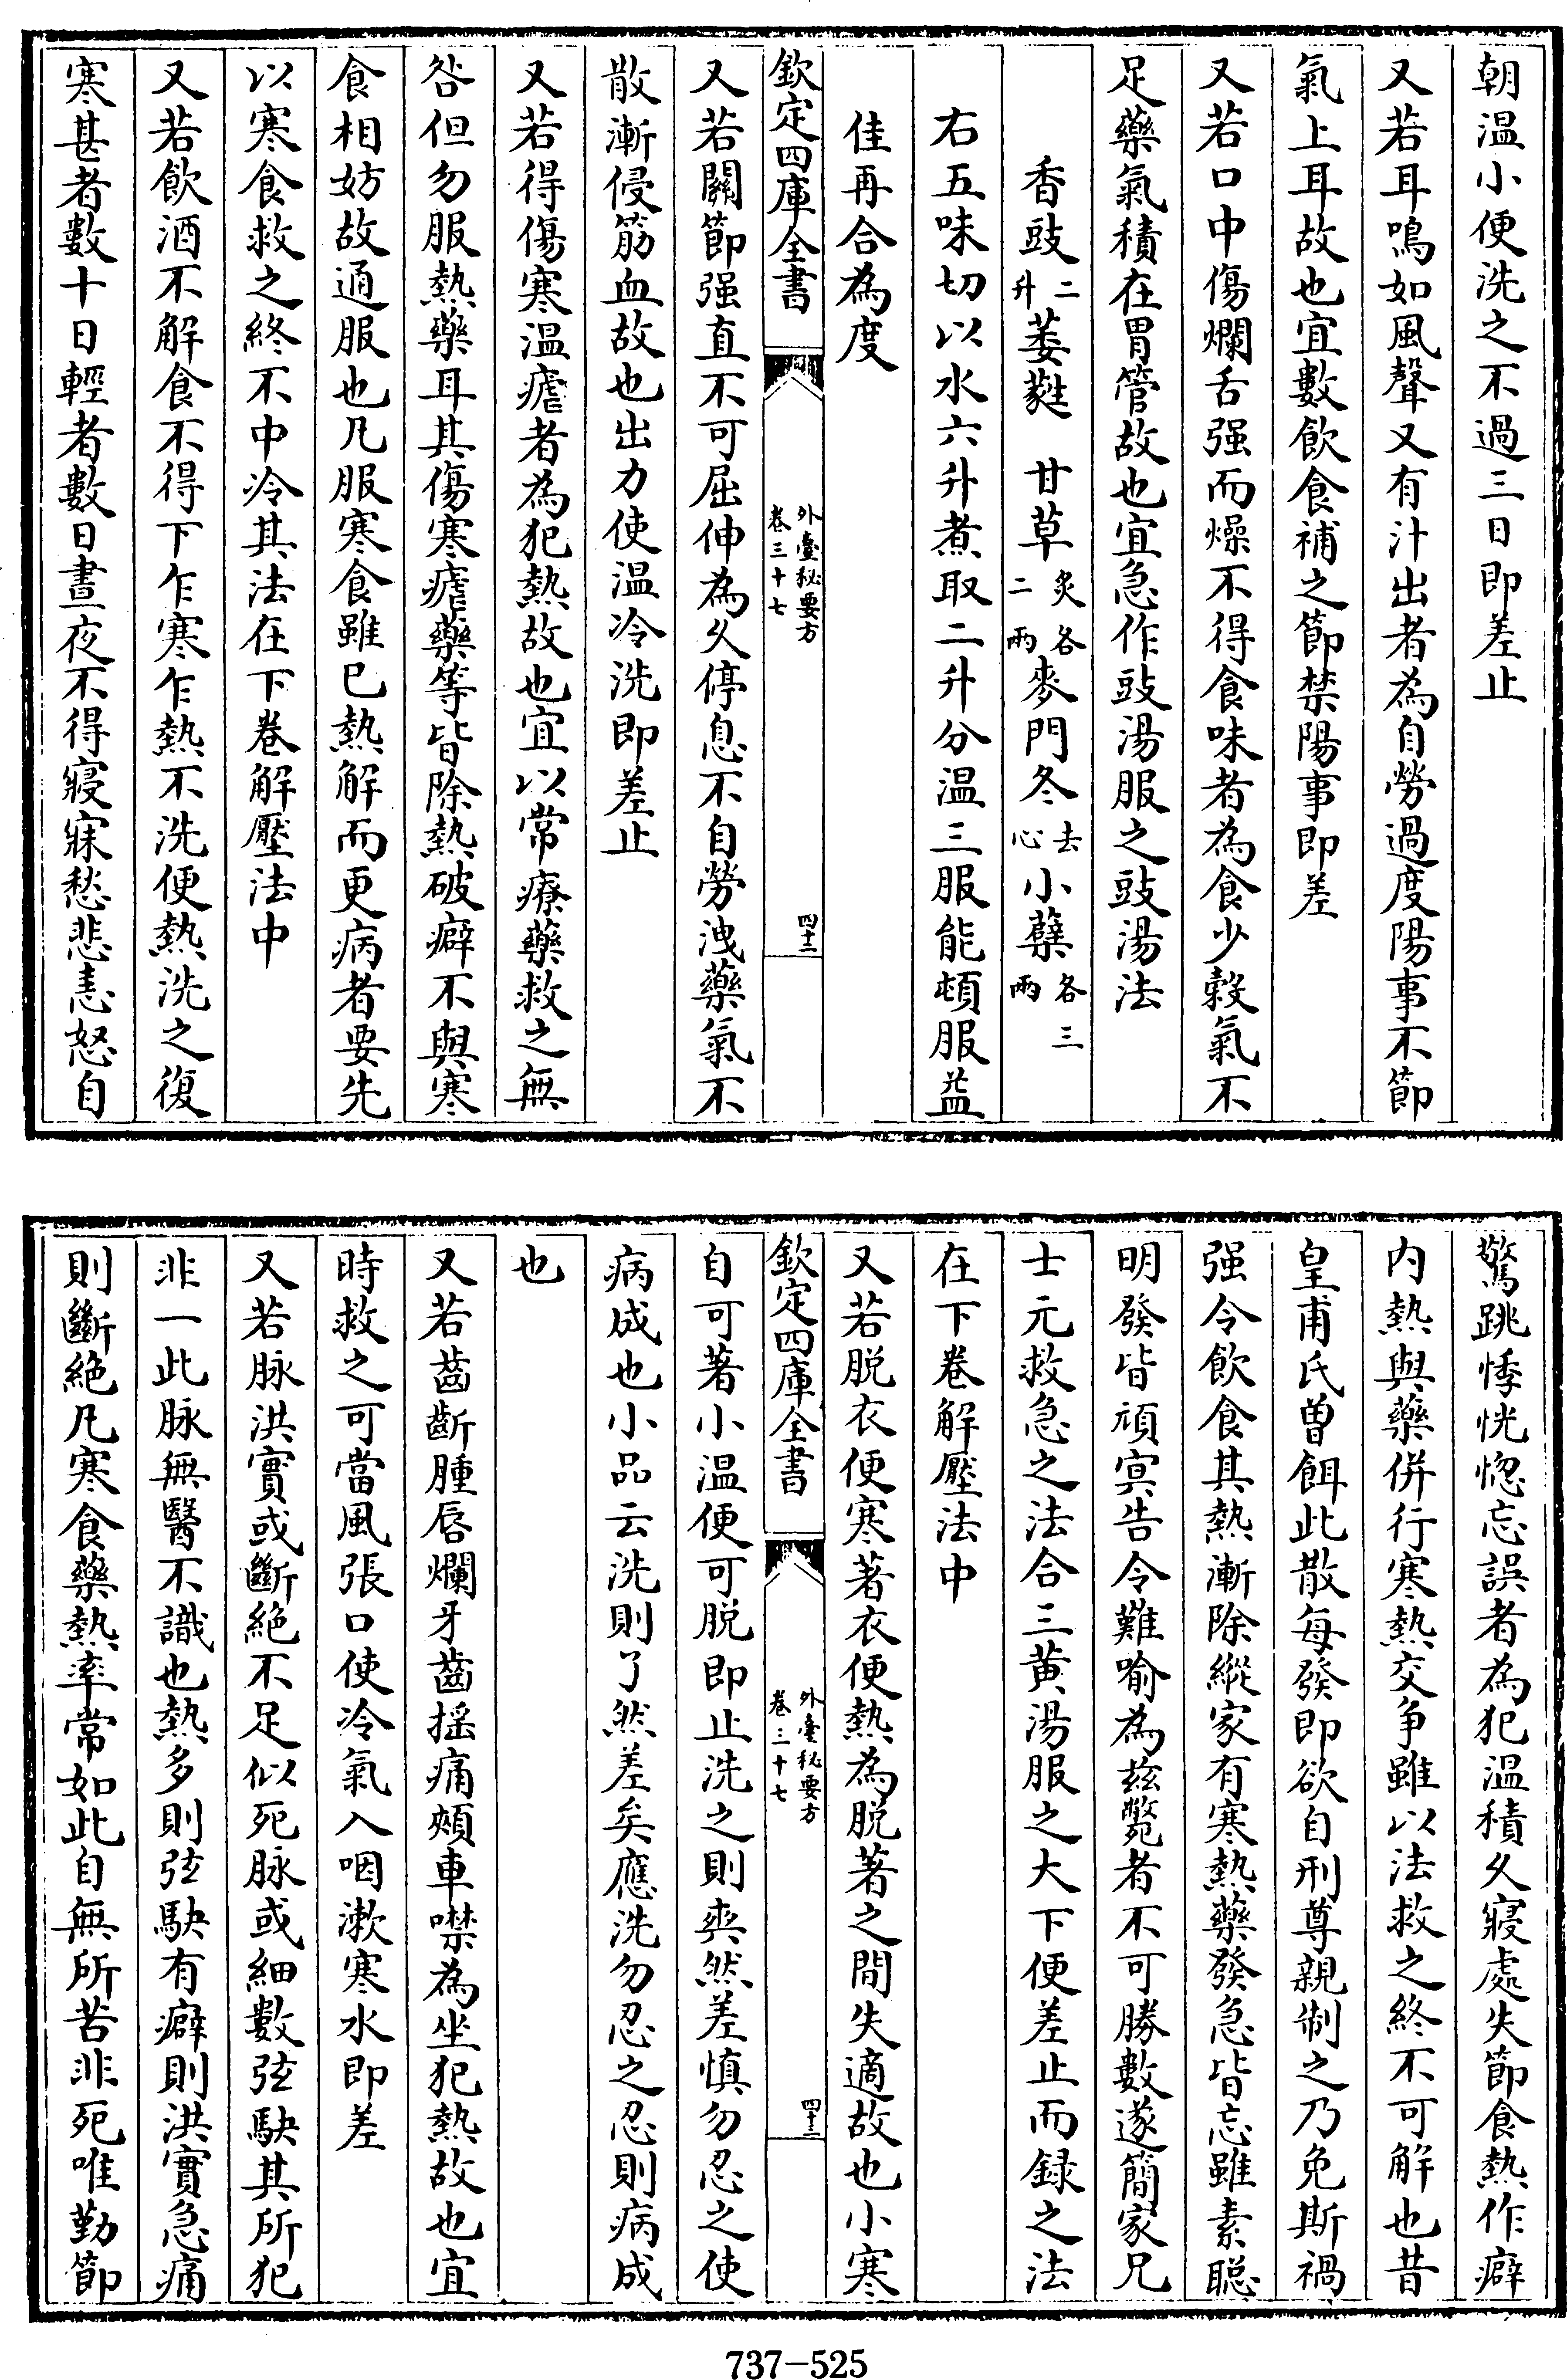 朝温小便洗之不過三日即差止
又若耳鳴如風聲又有汁出者為自勞過度陽事不節
氣上耳故也宜數飲食補之節禁陽事即差
又若口中傷爛舌强而燥不得食味者為食少穀氣不
足藥氣積在胃管故也宜急作豉湯服之豉湯法
香豉二升萎蕤 甘草炙各二兩麥門冬去心小蘗各三兩
右五味切以水六升煮取二升分温三服能頓服益
佳再合為度
欽定四庫全書 外臺秘要方卷三十七 四十二
又若關節强直不可屈伸為久停息不自勞洩藥氣不
散漸侵筋血故也出力使温冷洗即差止
又若得傷寒温瘧者為犯熱故也宜以常療藥救之無
咎但勿服熱藥耳其傷寒瘧藥等皆除熱破癖不與寒
食相妨故通服也凡服寒食雖已熱解而更病者要先
以寒食救之終不中冷其法在下卷解壓法中
又若飲酒不解食不得下乍寒乍熱不洗便熱洗之復
寒甚者數十日輕者數日晝夜不得寢寐愁悲恚怒自
驚跳悸恍惚忘誤者為犯温積久寢處失節食熱作癖
内熱與藥併行寒熱交争雖以法救之終不可解也昔
皇甫氏曽餌此散每發即欲自刑尊親制之乃免斯禍
强令飲食其熱漸除縱家有寒熱藥發急皆忘雖素聡
明發皆頑㝠告令難喻為兹斃者不可勝數遂簡家兄
士元救急之法合三黄湯服之大下便差止而録之法
在下卷解壓法中
又若脱衣便寒著衣便熱為脱著之間失適故也小寒
欽定四庫全書 外臺秘要方卷三十七 四十三
自可著小温便可脱即止洗之則爽然差慎勿忍之使
病成也小品云洗則了然差矣應洗勿忍之忍則病成
也
又若齒齗腫唇爛牙齒揺痛頰車噤為坐犯熱故也宜
時救之可當風張口使冷氣入咽漱寒水即差
又若脉洪實或斷絶不足似死脉或細數弦駃其所犯
非一此脉無醫不識也熱多則弦駃有癖則洪實急痛
則斷絶凡寒食藥熱率常如此自無所苦非死唯勤節
737-525